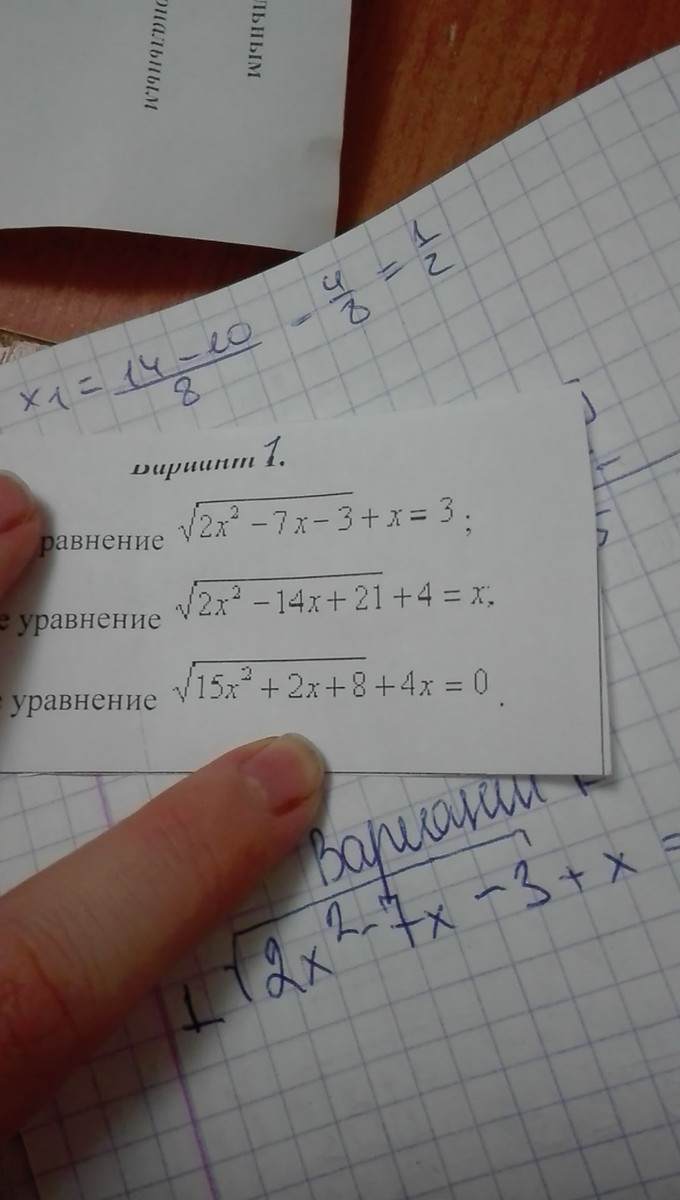 льным
нальным
x₁ = \frac{14-10}{8} = \frac{4}{8} = \frac{1}{2}
Вариант 1.
равнение √(2x² – 7x – 3) + x = 3 ;
е уравнение √(2x² – 14x + 21) + 4 = x;
уравнение √(15x² + 2x + 8) + 4x = 0 .
Вариант
1 √(2x² - 7x - 3) + x =